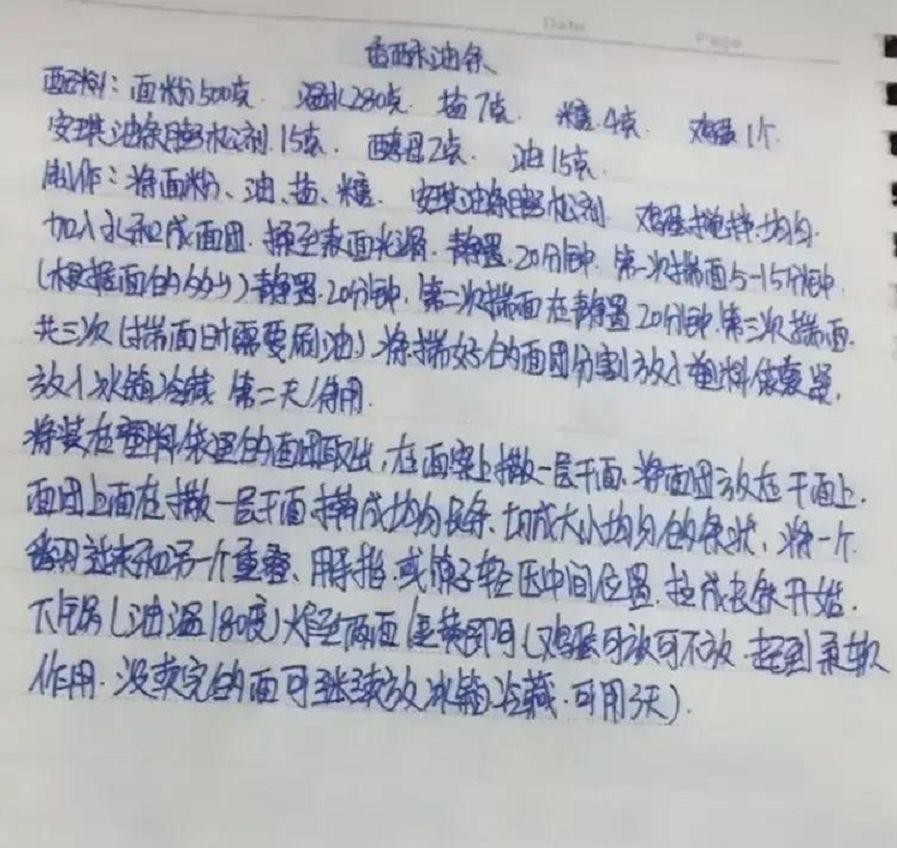 Date Page
香酥油条
配料：面粉500克. 温水280克. 盐7克. 糖.4克. 鸡蛋1个.
安琪油条膨松剂.15克. 酵母2克. 油15克.
制作：将面粉、油、盐、糖. 安琪油条膨松剂 鸡蛋搅拌均匀.
加入水和成面团. 揉至表面光滑. 静置.20分钟. 第一次揣面5-15分钟.
(根据面的多少)静置.20分钟. 第二次揣面在静置20分钟.第三次揣面.
共三次(揣面时需要刷油)将揣好的面团分割放入塑料袋
放入冰箱冷藏 第二天/待用.
将装在塑料袋里的面团取出，在面案上撒一层干面、将面团放在干面上.
面团上面在撒一层干面 擀成均匀长条、切成大小均匀的条状、将一个
翻过来和另一个重叠、用手指.或筷子轻压中间位置.拉成长条开始.
下锅(油温180度)炸至两面金黄即可(鸡蛋可放可不放 起到柔软
作用. 没卖完的面可继续放冰箱冷藏.可用3天).